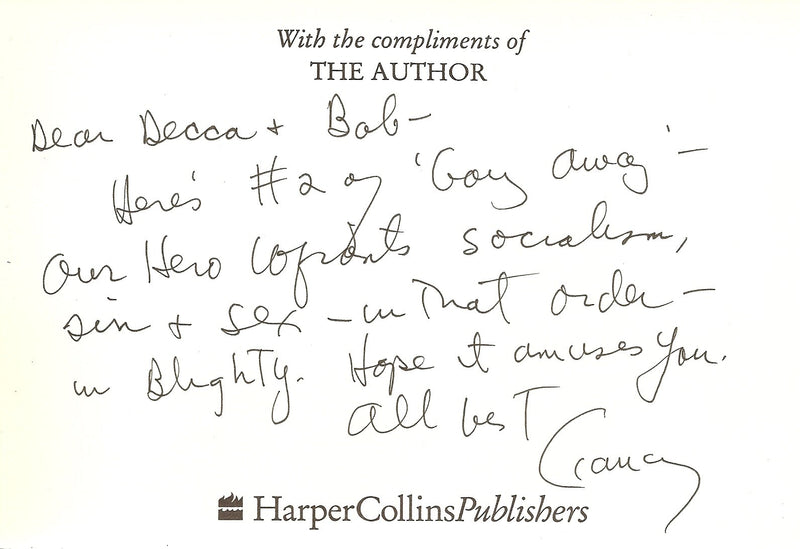 With the compliments of
THE AUTHOR
Dear Decca + Bob-
Here's #2 of 'Going away' -
Our Hero confronts socialism,
sin + sex - in that order -
in Blighty. Hope it amuses you.
All best
Clancy
HarperCollinsPublishers